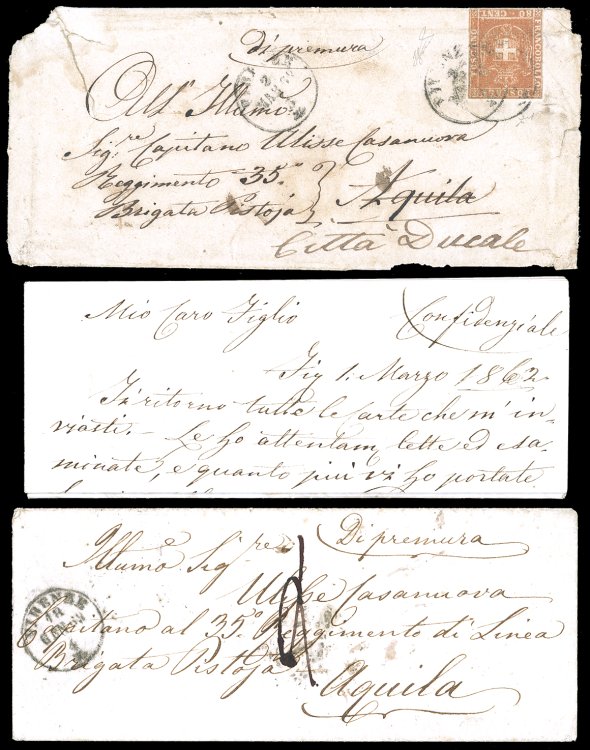 Di premura
FIRENZE
2
FIRENZE
2
FRANCOBOLLO
80 CENT
POSTALE
All' Illmo:
Sig.re Capitano Ulisse Casanuova
Reggimento 35.°
Brigata Pistoja
Aquila
Città Ducale
Mio Caro Figlio
Confidenziale
1: Marzo 1862
Ti ritorno tutte le carte che m'in-
viasti. – Le ho attentam. lette ed esa-
minate, e quanto più vi ho portate
Illumo Sig.re
Di premura
Ulisse Casanuova
Capitano al 35.° Reggimento di Linea
Brigata Pistoja
Aquila
FIRENZE
18